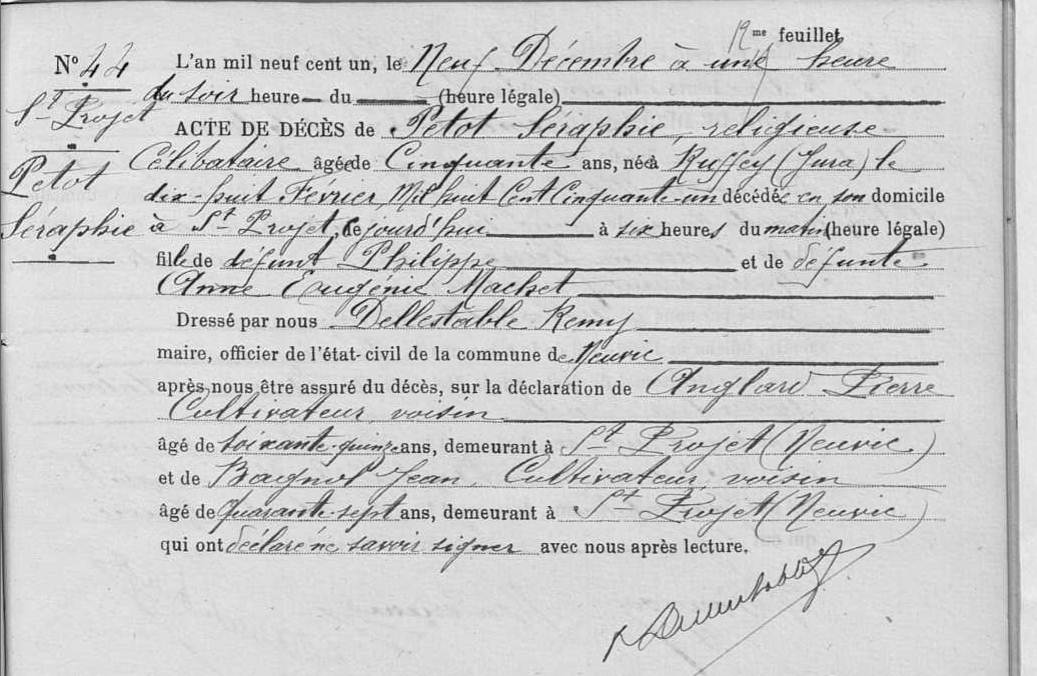 12me feuillet
No 44
St Projet
Petot
Séraphie
L'an mil neuf cent un, le Neuf Décembre à une heure
du soir heure du (heure légale)
ACTE DE DÉCÈS de Petot Séraphie, religieuse
Célibataire âgée de Cinquante ans, née à Ruffey (Jura) le
dix-huit Février Mil huit Cent Cinquante-un décédée en son domicile
à St Projet, ce jourd'hui à six heures du matin (heure légale)
fille de défunt Philippe et de défunte
Anne Eugénie Machet
Dressé par nous Dellestable Remy
maire, officier de l'état-civil de la commune de Neuvic
après, nous être assuré du décès, sur la déclaration de Anglard Pierre
Cultivateur, voisin
âgé de soixante-quinze ans, demeurant à St Projet (Neuvic)
et de Bagnol Jean, Cultivateur, voisin
âgé de Quarante-sept ans, demeurant à St Projet (Neuvic)
qui ont déclaré ne savoir signer avec nous après lecture.